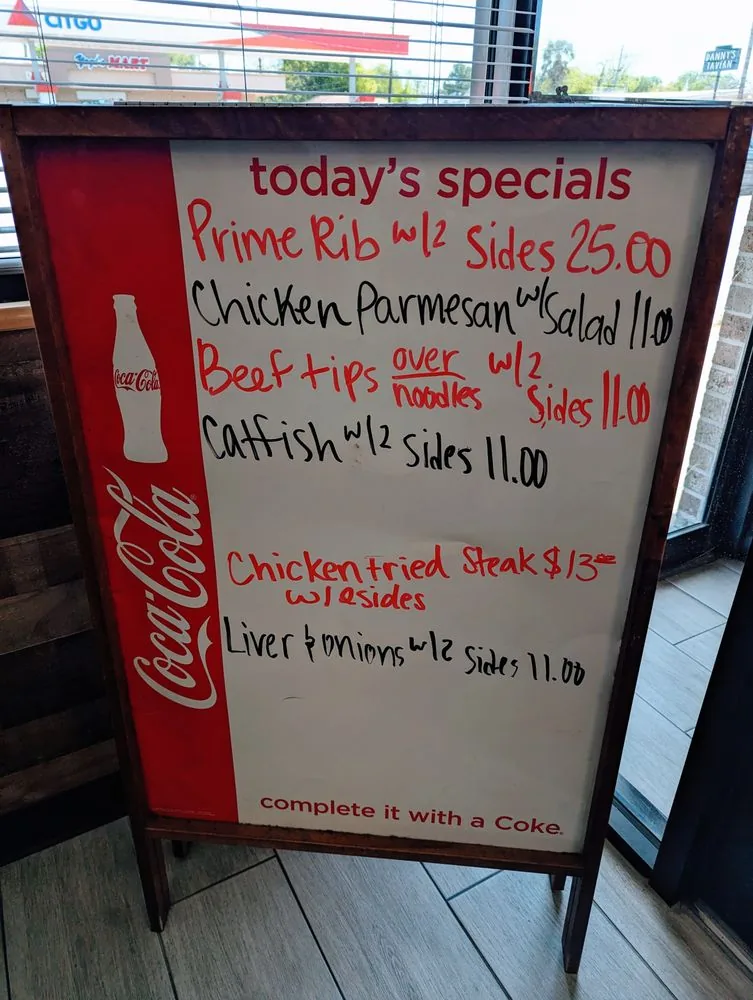 CITGO
MART
DANNY'S
today's specials
Prime Rib w/2 Sides 25.00
Chicken Parmesan w/Salad 11.00
Beef tips over noodles w/2 Sides 11.00
Catfish w/2 Sides 11.00
Chicken fried Steak $13.00
w/2sides
Liver & onions w/2 Sides 11.00
Coca-Cola
Coca-Cola
complete it with a Coke.